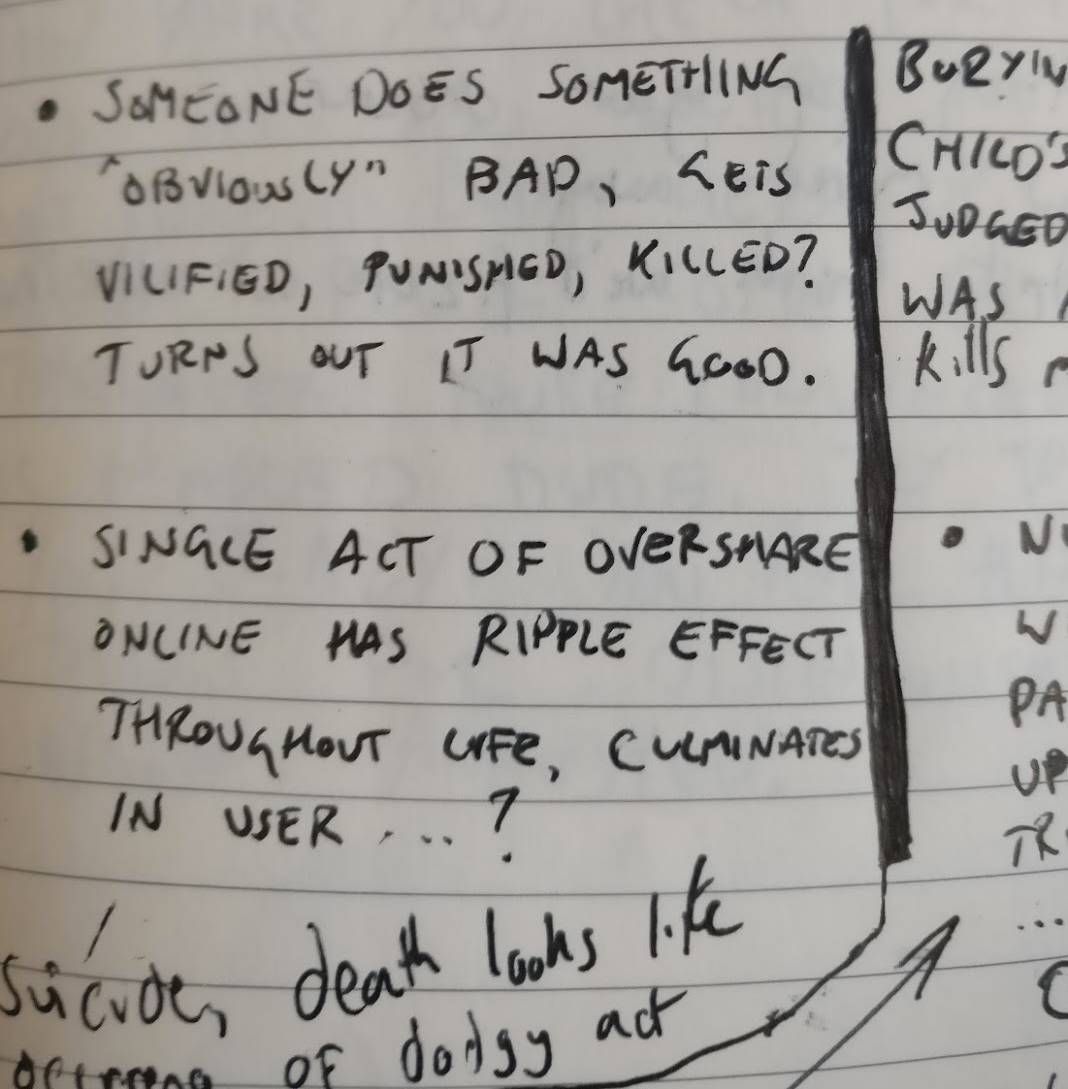 • SOMEONE DOES SOMETHING
"OBVIOUSLY" BAD, GETS
VILIFIED, PUNISHED, KILLED?
TURNS OUT IT WAS GOOD.
• SINGLE ACT OF OVERSHARE
ONLINE HAS RIPPLE EFFECT
THROUGHOUT LIFE, CULMINATES
IN USER ...?
suicide, death looks like
OF dodgy act
CHILD'S
JUDGED
WAS
Kills
•
UP
...